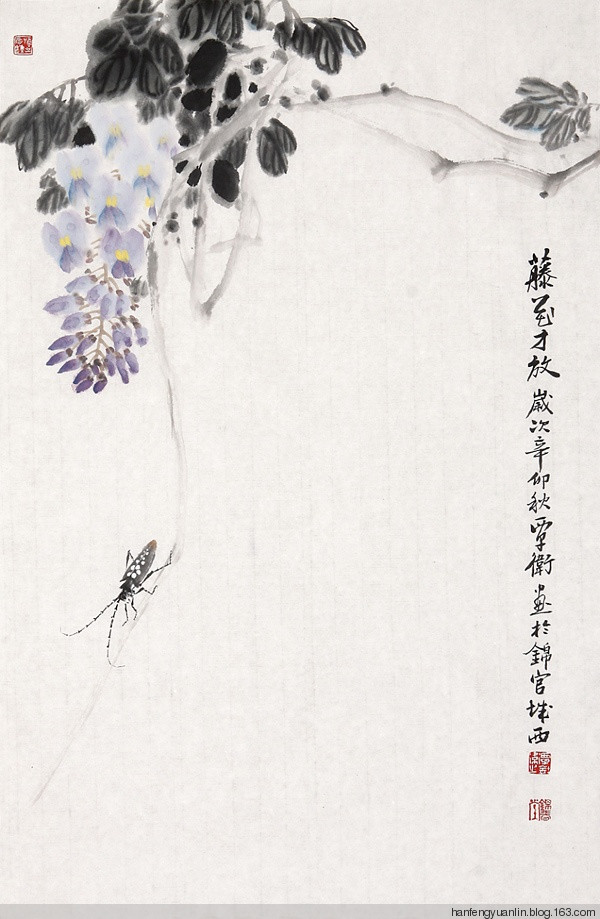 藤花才放歲次辛卯秋覃衛畫於錦官城西
hanfengyuanlin.blog.163.com